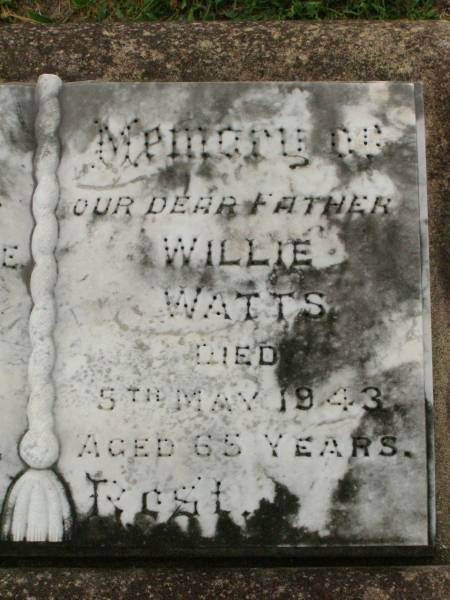 Memory of
OUR DEAR FATHER
WILLIE
WATTS
DIED
5TH MAY 1943
AGED 65 YEARS.
Rest.